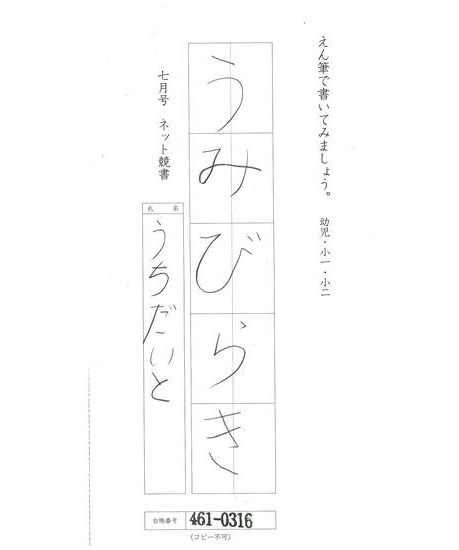 えん筆で書いてみましょう。 幼児・小一・小二
うみびらき
七月号 ネット競書
氏名
うちだいと
台帳番号 461-0316
(コピー不可)